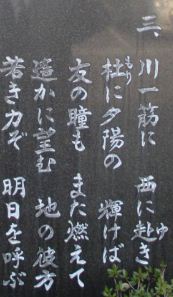 三、川一筋に 西に赴き
杜に夕陽の 輝けば
友の瞳も また燃えて
遥かに望む 地の彼方
若き力ぞ 明日を呼ぶ